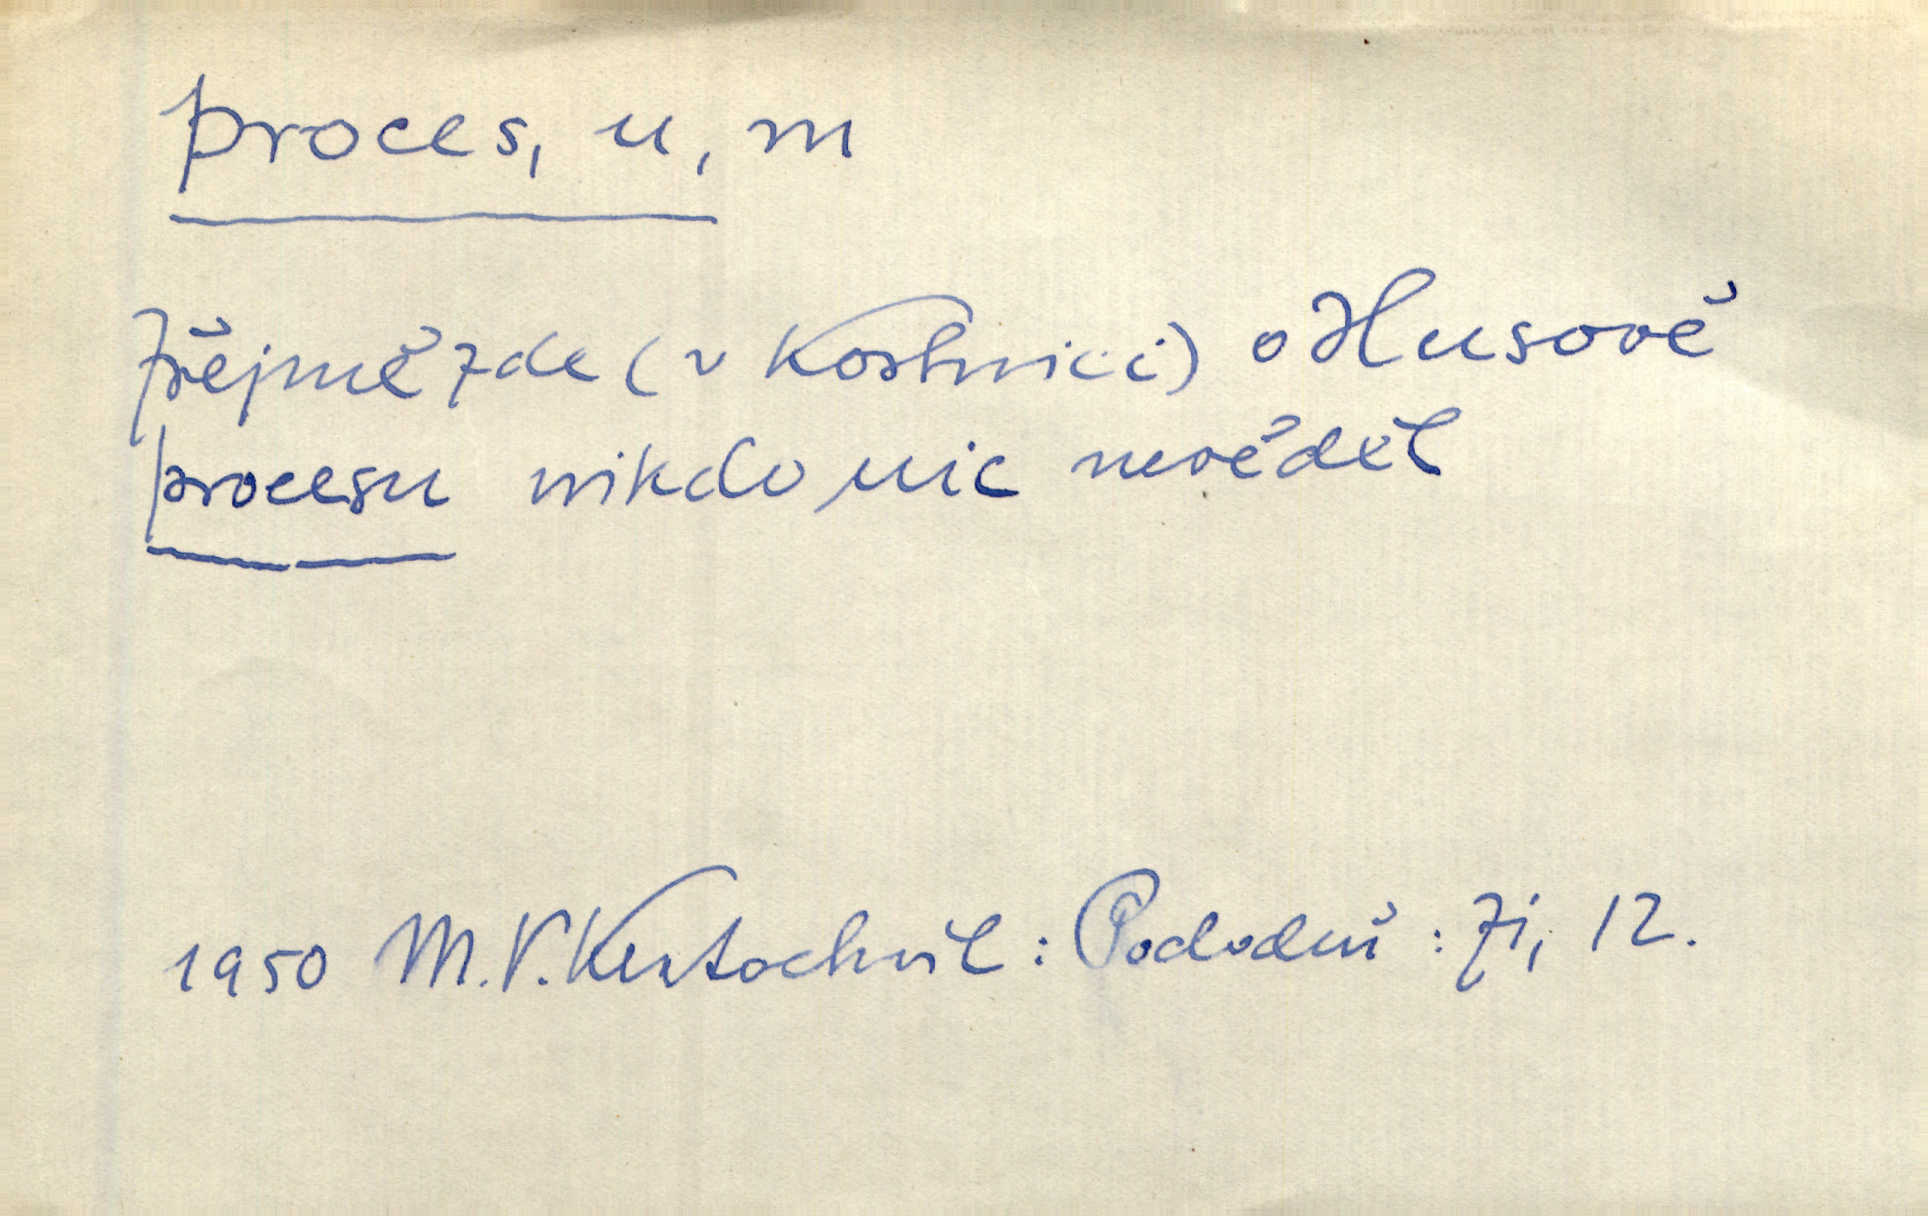 proces, u, m
Zřejmě zde (v Kostnici) o Husově
procesu nikdo nic nevěděl
1950 M.V. Kratochvíl : : Ži, 12.